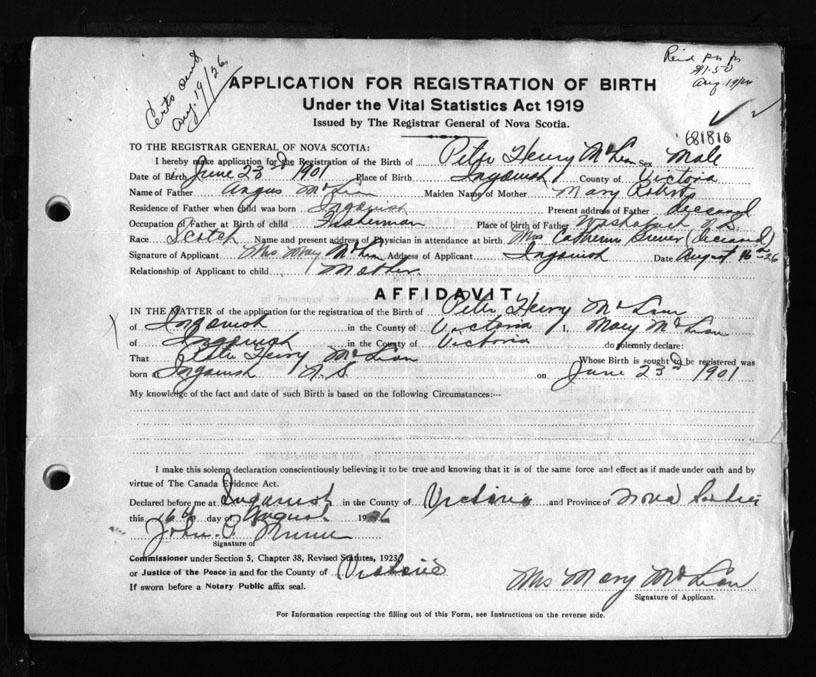 Certs sent
Aug. 19/26
$1.50
Aug. 19/26
APPLICATION FOR REGISTRATION OF BIRTH
Under the Vital Statistics Act 1919
Issued by The Registrar General of Nova Scotia.
681816
TO THE REGISTRAR GENERAL OF NOVA SCOTIA:
I hereby make application for the Registration of the Birth of Peter Henry McLean Sex Male
Date of Birth June 23d 1901 Place of Birth Ingonish County of Victoria
Name of Father Angus McLean Maiden Name of Mother Mary
Residence of Father when child was born Ingonish Present address of Father deceased
Occupation of Father at Birth of child Fisherman Place of birth of Father N.S.
Race Scotch Name and present address of Physician in attendance at birth Mrs Catherine Brewer (deceased)
Signature of Applicant Mrs Mary McLean Address of Applicant Ingonish Date August 16th 26
Relationship of Applicant to child Mother
AFFIDAVIT
IN THE MATTER of the application for the registration of the Birth of Peter Henry McLean
of Ingonish in the County of Victoria I, Mary McLean
of Ingonish in the County of Victoria do solemnly declare:
That Peter Henry McLean Whose Birth is sought to be registered was
born at Ingonish N.S. on June 23d 1901
My knowledge of the fact and date of such Birth is based on the following Circumstances:---
I make this solemn declaration conscientiously believing it to be true and knowing that it is of the same force and effect as if made under oath and by
virtue of The Canada Evidence Act.
Declared before me at Ingonish in the County of Victoria and Province of Nova Scotia
this 16th day of August 1926
John
Signature of
Commissioner under Section 5, Chapter 38, Revised Statutes, 1923
or Justice of the Peace in and for the County of Victoria
If sworn before a Notary Public affix seal.
Mrs Mary McLean
Signature of Applicant.
For Information respecting the filling out of this Form, see Instructions on the reverse side.